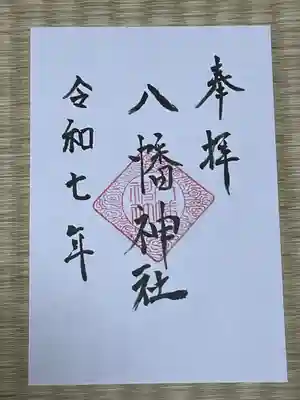 奉拝
八幡神社
令和七年